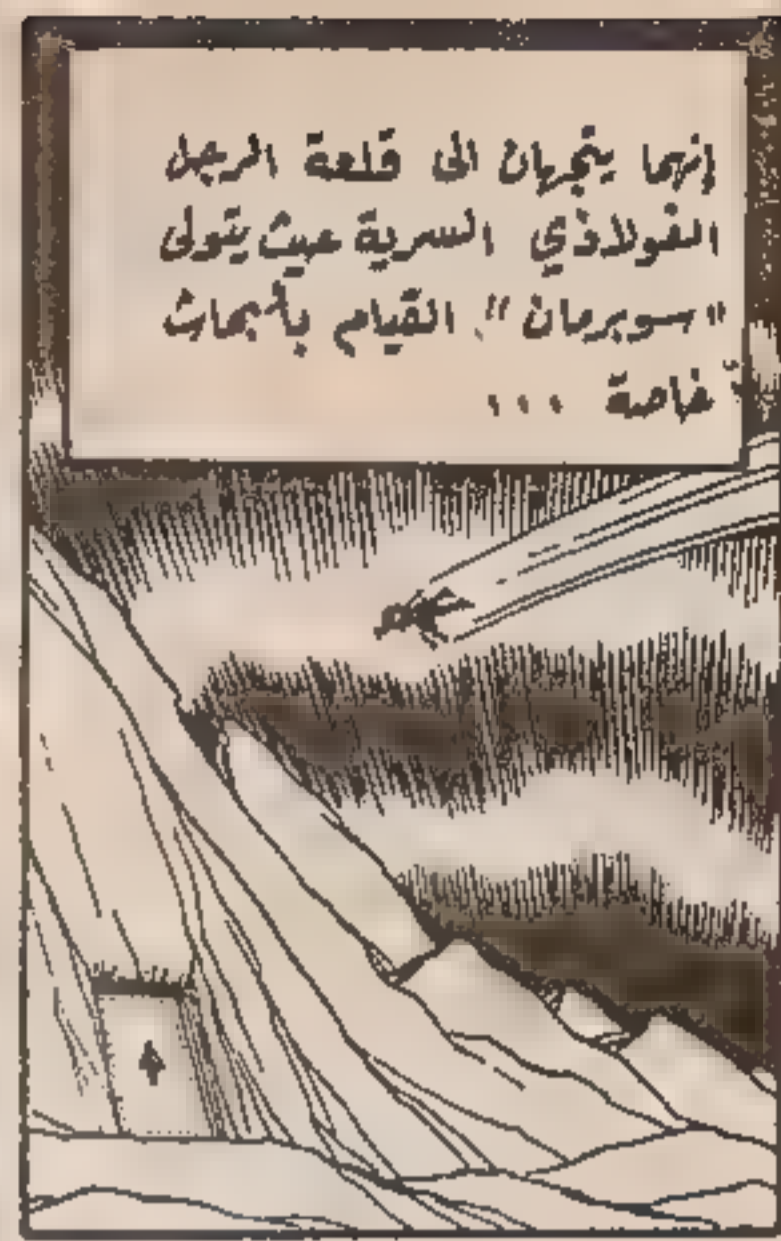 إنهما يتجهان الى قلعة الرجل
الفولاذي السرية حيث يتولى
"سوبرمان" القيام بأبحاث
خاصة ...